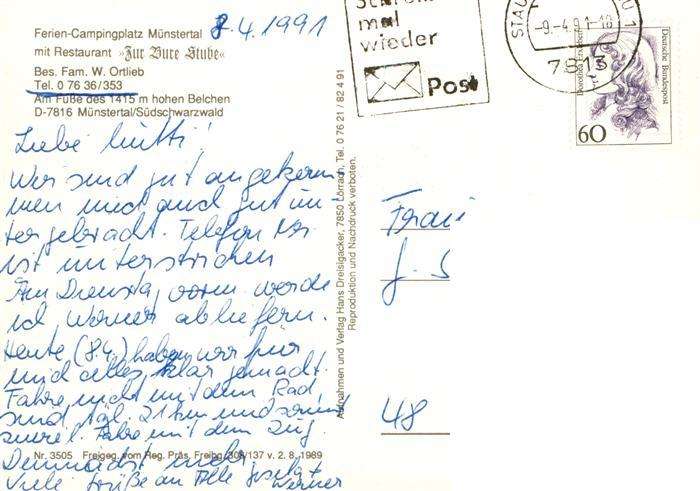 Ferien-Campingplatz Münstertal
8.4.1991
mit Restaurant »Zur Bure Stube«
Bes. Fam. W. Ortlieb
Tel. 0 76 36/353
Am Fuße des 1415 m hohen Belchen
D-7816 Münstertal/Südschwarzwald
mal
wieder
Post
STAU
-9.-4.91-18
7813
Deutsche Bundespost
60
Liebe Mutti!
Wir sind gut angekom-
men und auch gut un-
tergebracht. Telefon Nr.
ist unterstrichen
Am Dienstag vorm. werde
ich Werner abliefern.
Heute (8.4.) haben wir für
mich alles klar gemacht.
Fahre nicht mit dem Rad
sind tägl. 21 km und
zuviel. Fahre mit dem Zug.
Demnächst mehr.
Viele Grüße an Alle
Werner
Aufnahmen und Verlag Hans Dreisigacker, 7850 Lörrach, Tel. 0 76 21 / 8 24 91
Reproduktion und Nachdruck verboten.
Frau
J. S
48
Nr. 3505 Freigeg. vom Reg. Präs. Freibg. /137 v. 2. 8. 1989